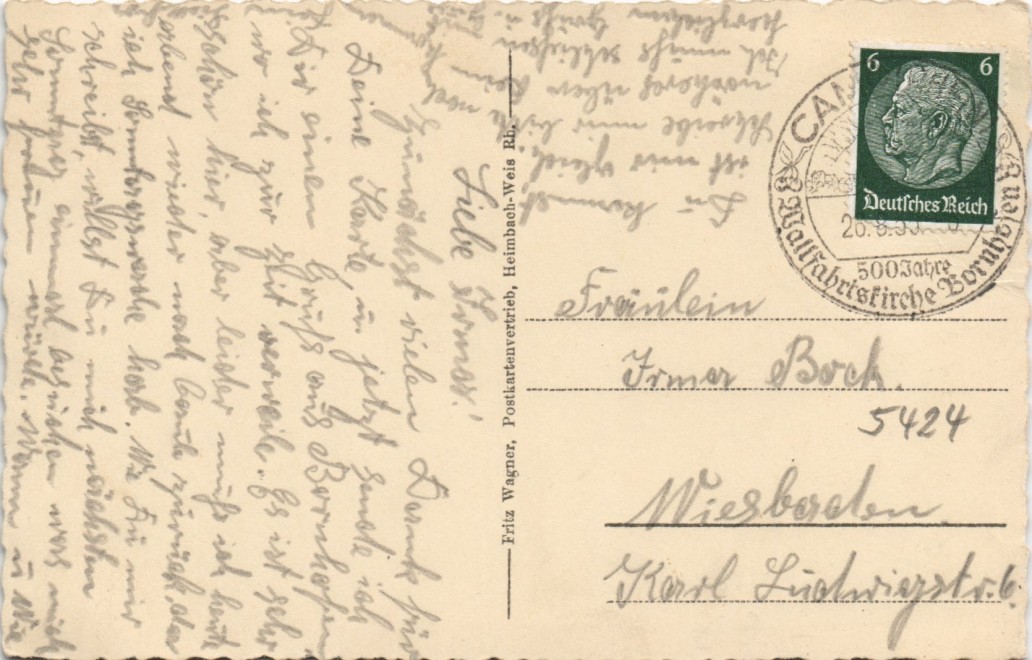 Liebe Irma!
Zunächst vielen Dank für
Deine Karte, u. jetzt sende ich
Dir einen Gruß aus Bornhofen
wo ich zur Zeit verweile. Es ist sehr
schön hier, aber leider muß ich heute
abend wieder nach zurück, da
ich hab. Wie Du mir
schreibst, willst Du mich nächsten
Sonntag einmal besuchen was mich
sehr freuen würde. Wann u. wie
Du kommst
ist mir gleich.
Schreibe mir bitte
Ich muß schließen
herzlichen Gruß u.
Fritz Wagner, Postkartenvertrieb, Heimbach-Weis Rh.
6 6
Deutsches Reich
CAM
500 Jahre
Wallfahrtskirche Bornhofen
Fräulein
Irma Bock.
5424
Wiesbaden.
Karl Ludwigstr. 6.